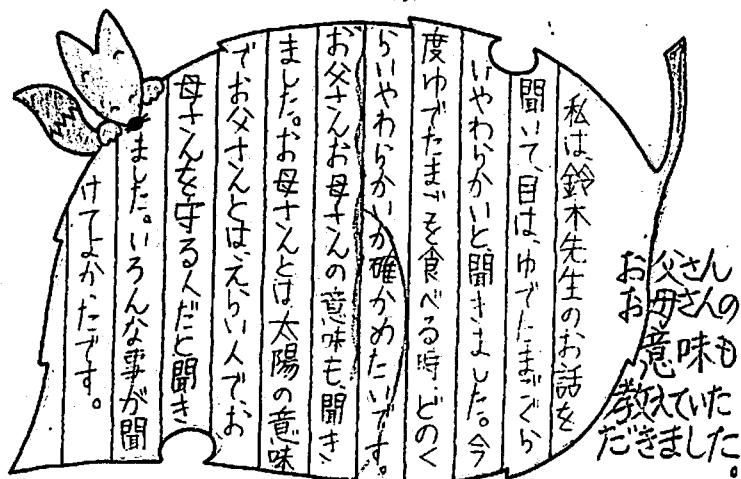 私は、鈴木先生のお話を
聞いて、目は、ゆでたまごぐら
いやわらかいと聞きました。今
度ゆでたまごを食べる時、どのく
らいやわらかいか確かめたいです。
お父さんお母さんの意味も、聞き
ました。お母さんとは、太陽の意味
でお父さんとは、えらい人で、お
母さんを守る人だと聞き
ました。いろんな事が聞
けてよかったです。
お父さん
お母さんの
意味も
教えていた
だきました。